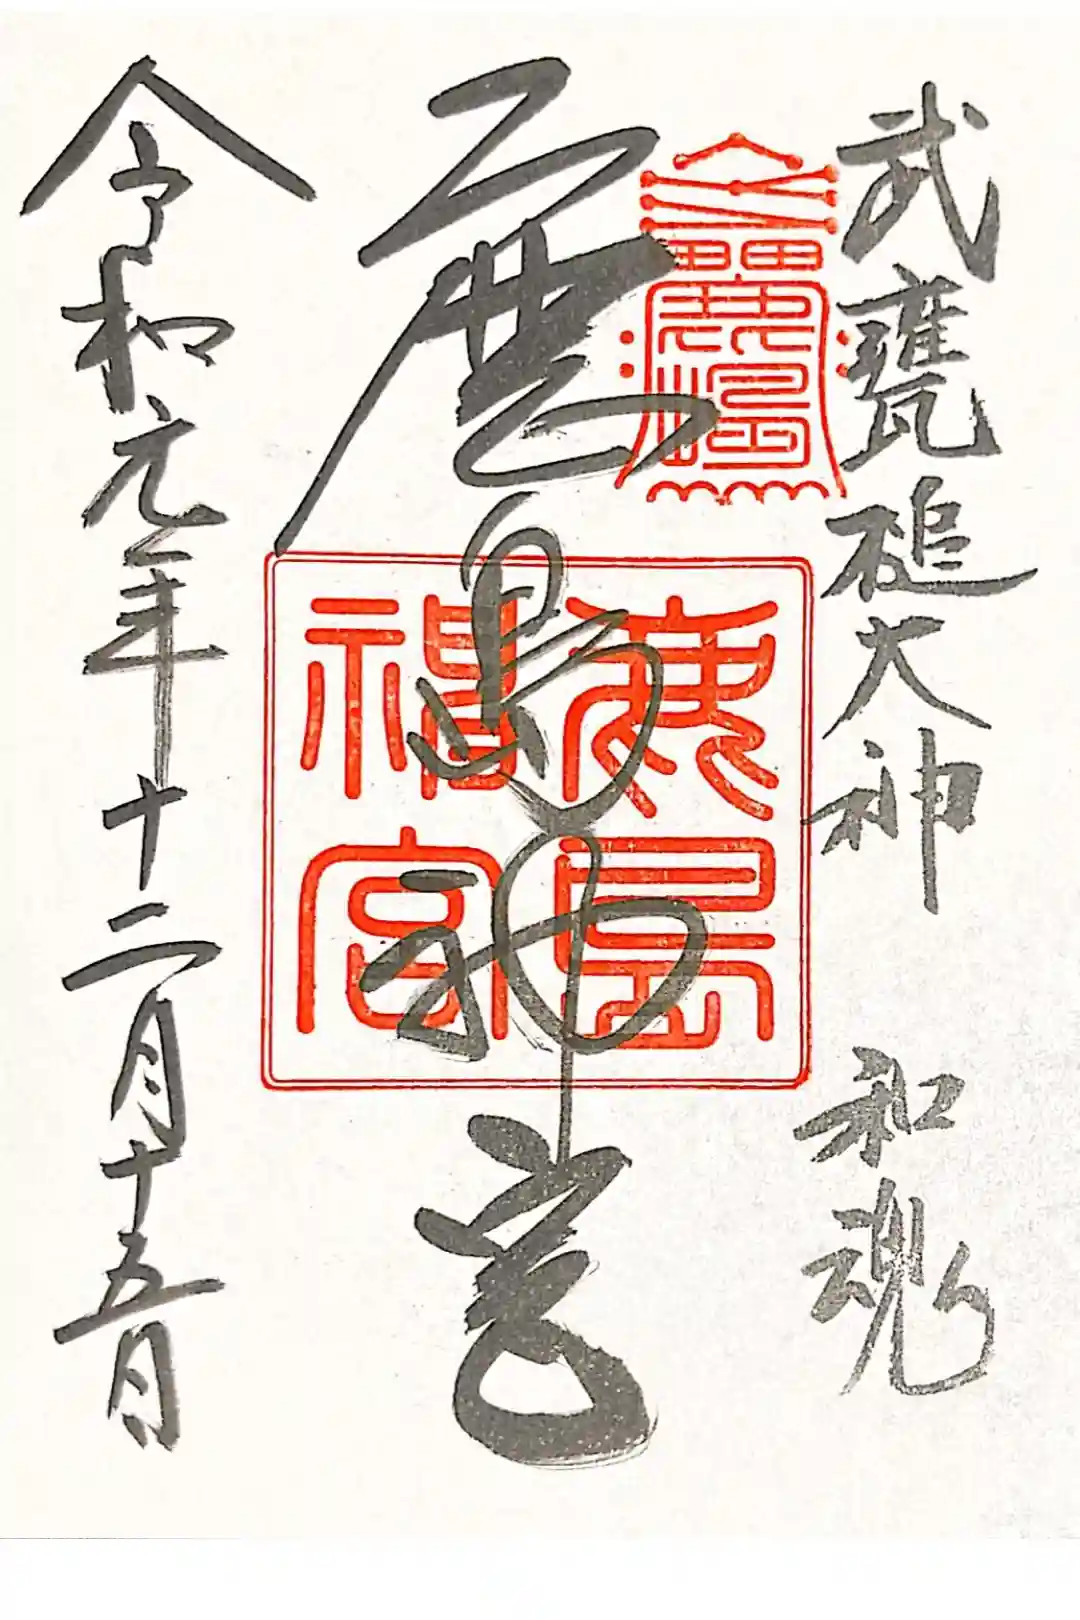 武甕槌大神 和魂
鹿島神宮
鹿島
宮
令和元年十二月十五日